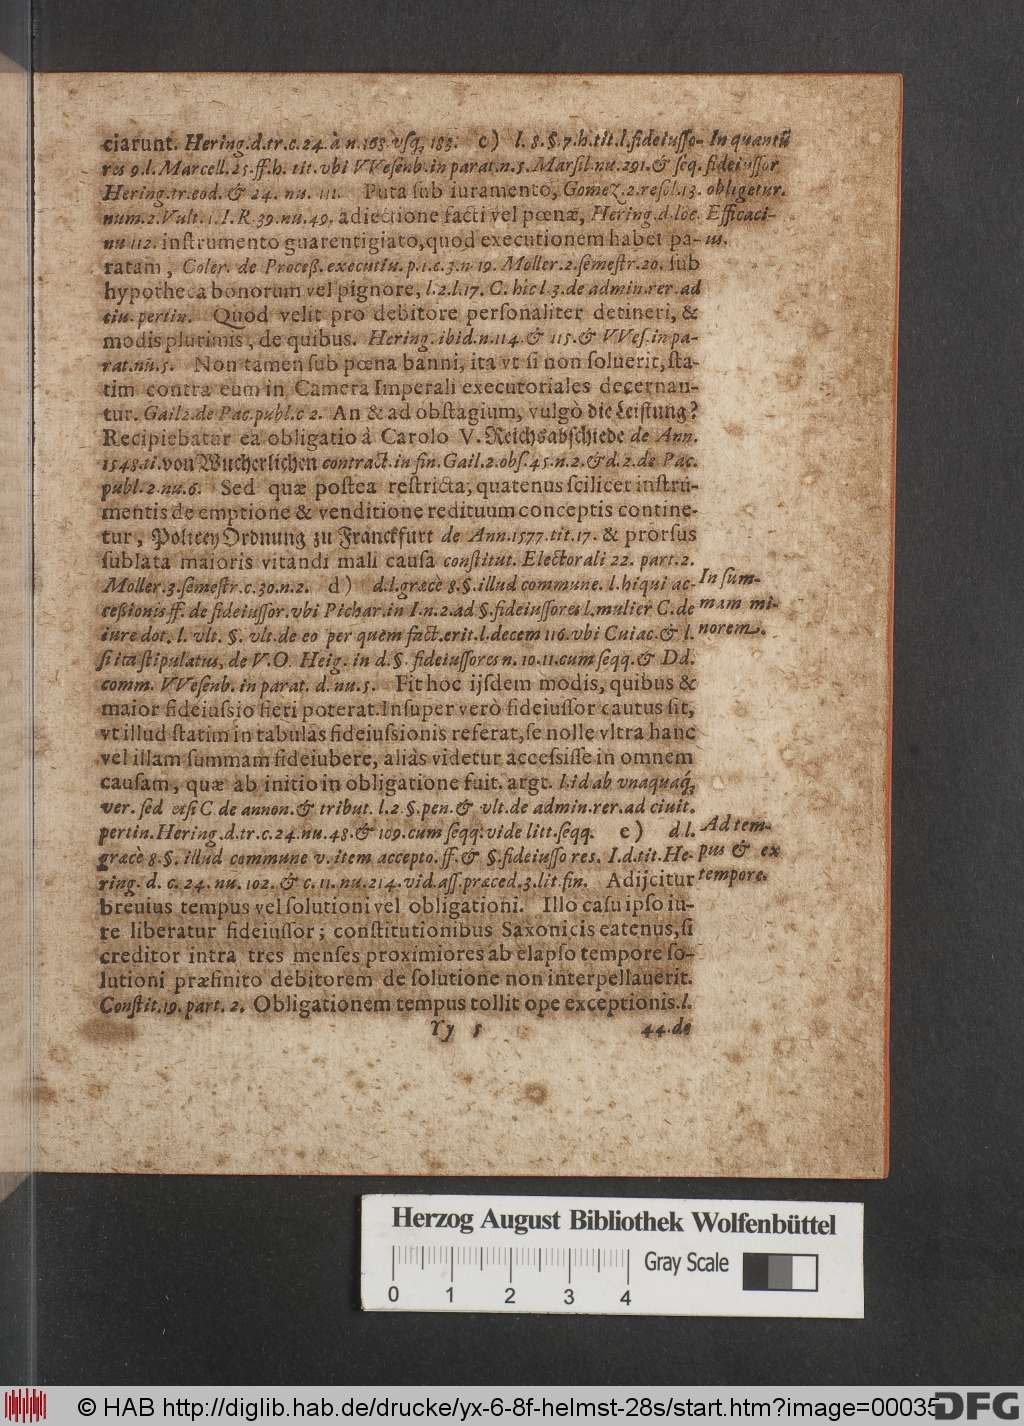 ciarunt. Hering. d. tr. c. 24. à n. 163. vsq; 183. c) l. 8. §. 7. h. tit. l. fideiuſſo-
res 9. l. Marcell. 25. ff. h. tit. vbi VVeſenb. in parat. n. 5. Marſil. nu. 291. & ſeq.
Hering. tr. eod. & 24. nu. 111. Puta ſub iuramento, Gomez. 2. reſol. 13.
num. 2. Vult. 1. I. R. 39. nu. 49. adiectione facti vel pœnæ, Hering. d. loc.
nu 112. inſtrumento guarentigiato, quod executionem habet pa-
ratam, Coler. de Proceß. executiu. p. 1. c. 3. n. 19. Moller. 2. ſemeſtr. 20. ſub
hypotheca bonorum vel pignore, l. 2. l. 17. C. hic l. 3. de admin. rer. ad
ciu. pertin. Quod velit pro debitore perſonaliter detineri, &
modis plurimis, de quibus. Hering. ibid. n. 114. & 115. & VVeſ. in pa-
rat. nū. 5. Non tamen ſub pœna banni, ita vt ſi non ſoluerit, ſta-
tim contra eum in Camera Imperali executoriales decernan-
tur. Gail 2. de Pac. publ. c 2. An & ad obſtagium, vulgò die Leiſtung?
Recipiebatur ea obligatio à Carolo V. Reichsabſchiede de Ann.
1548. ti. von Wucherlichen contract. in fin. Gail. 2. obſ. 45. n. 2. & d. 2. de Pac.
publ. 2. nu. 6. Sed quæ poſtea reſtricta, quatenus ſcilicet inſtru-
mentis de emptione & venditione redituum conceptis contine-
tur, Policey Ordnung zu Franckfurt de Ann. 1577. tit. 17. & prorſus
ſublata maioris vitandi mali cauſa conſtitut. Electorali 22. part. 2.
Moller. 3. ſemeſtr. c. 30. n. 2. d) d. l. græcè 8. §. illud commune. l. hi qui ac-
ceßionis ff. de fideiuſſor. vbi Pichar. in I. n. 2. ad §. fideiuſſores l. mulier C. de
iure dot. l. vlt. §. vlt. de eo per quem fact. erit. l. decem 116. vbi Cuiac. & l.
ſi ita ſtipulatus, de V. O. Heig. in d. §. fideiuſſores n. 10. 11. cum ſeqq. & Dd.
comm. VVeſenb. in parat. d. nu. 5. Fit hoc ijſdem modis, quibus &
maior fideiuſsio fieri poterat. Inſuper verò fideiuſſor cautus ſit,
vt illud ſtatim in tabulas fideiuſsionis referat, ſe nolle vltra hanc
vel illam ſummam fideiubere, aliàs videtur acceſsiſſe in omnem
cauſam, quæ ab initio in obligatione fuit. argt. l. id ab vnaquaq;
ver. ſed etſi C de annon. & tribut. l. 2. §. pen. & vlt. de admin. rer. ad ciuit.
pertin. Hering. d. tr. c. 24. nu. 48. & 109. cum ſeqq. vide litt. ſeqq. e) d l.
græcè 8. §. illud commune v. item accepto. ff. & §. fideiuſſores. I. d. tit. He-
ring. d. c. 24. nu. 102. & c. 11. nu. 214. vid. aſſ. præced. 3. lit. fin. Adijcitur
breuius tempus vel ſolutioni vel obligationi. Illo caſu ipſo iu-
re liberatur fideiuſſor; conſtitutionibus Saxonicis eatenus, ſi
creditor intra tres menſes proximiores ab elapſo tempore ſo-
lutioni præfinito debitorem de ſolutione non interpellauerit.
Conſtit. 19. part. 2. Obligationem tempus tollit ope exceptionis. l.
Yy 5 44. de
In quantū
fideiuſſor
obligetur.
Efficaci-
us.
In ſum-
mam mi-
norem.
Ad tem-
pus & ex
tempore.
Herzog August Bibliothek Wolfenbüttel
Gray Scale
0 1 2 3 4
© HAB http://diglib.hab.de/drucke/yx-6-8f-helmst-28s/start.htm?image=00035
DFG